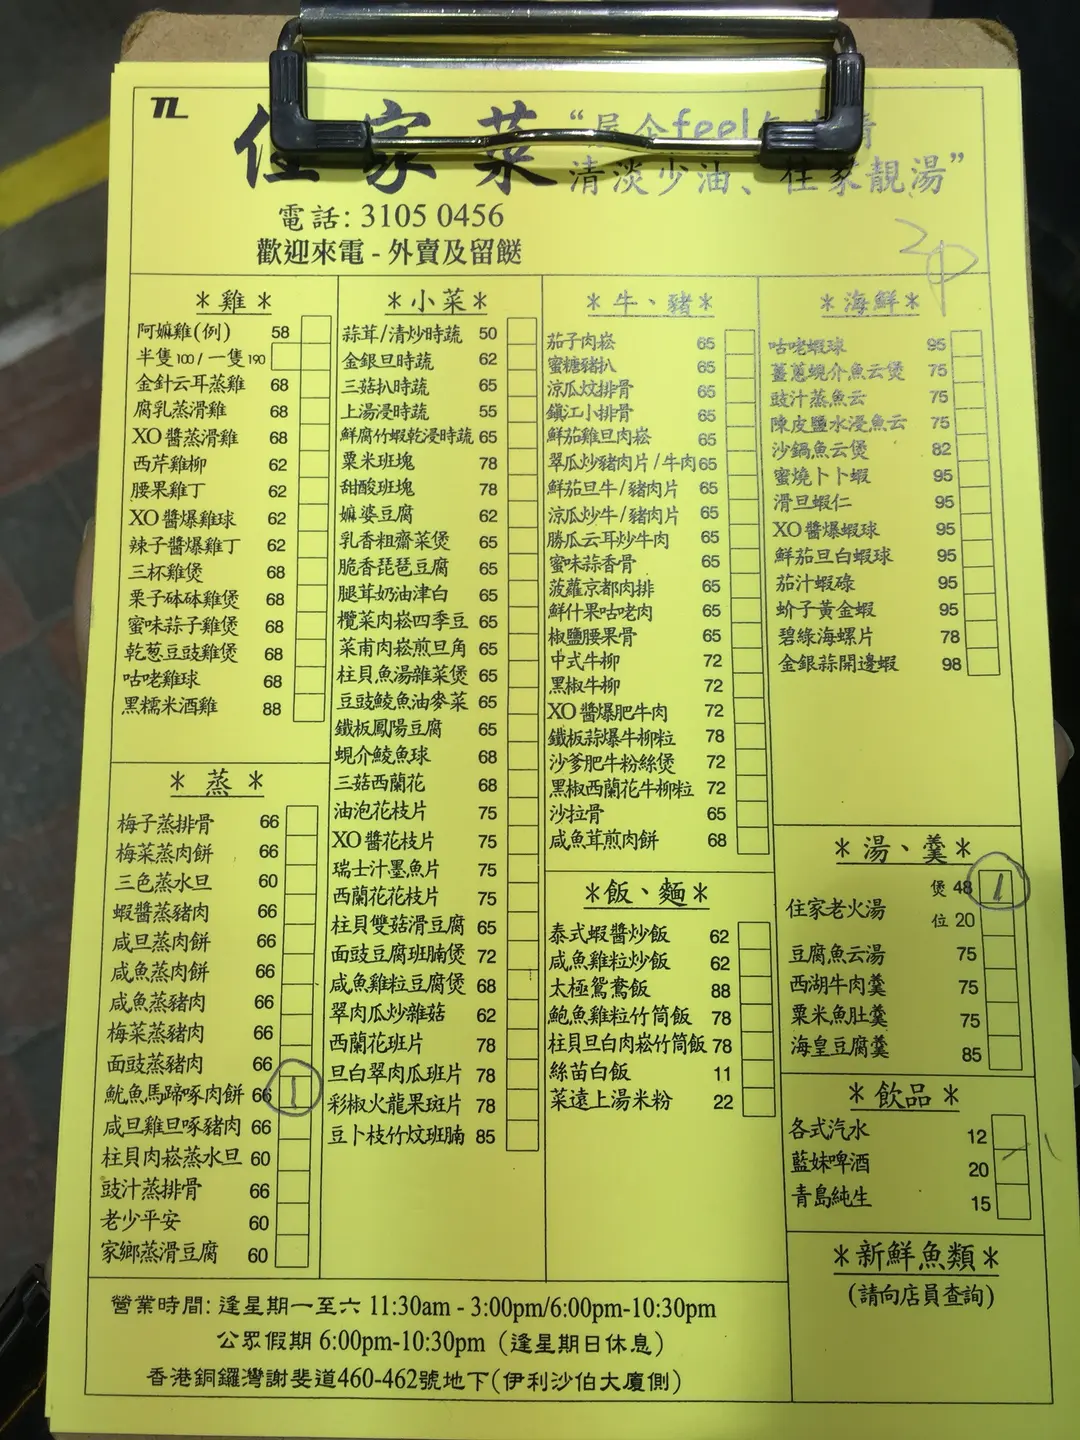 TL
住家菜
清淡少油、住家靚湯”
電話: 3105 0456
歡迎來電 - 外賣及留餸
2P
*雞*
阿嫲雞(例) 58
半隻100/一隻190
金針云耳蒸雞 68
腐乳蒸滑雞 68
XO醬蒸滑雞 68
西芹雞柳 62
腰果雞丁 62
XO醬爆雞球 62
辣子醬爆雞丁 62
三杯雞煲 68
栗子砵砵雞煲 68
蜜味蒜子雞煲 68
乾葱豆豉雞煲 68
咕咾雞球 68
黑糯米酒雞 88
*蒸*
梅子蒸排骨 66
梅菜蒸肉餅 66
三色蒸水旦 60
蝦醬蒸豬肉 66
咸旦蒸肉餅 66
咸魚蒸肉餅 66
咸魚蒸豬肉 66
梅菜蒸豬肉 66
面豉蒸豬肉 66
魷魚馬蹄啄肉餅 66 1
咸旦雞旦啄豬肉 66
柱貝肉崧蒸水旦 60
豉汁蒸排骨 66
老少平安 60
家鄉蒸滑豆腐 60
*小菜*
蒜茸/清炒時蔬 50
金銀旦時蔬 62
三菇扒時蔬 65
上湯浸時蔬 55
鮮腐竹蝦乾浸時蔬 65
粟米班塊 78
甜酸班塊 78
嫲婆豆腐 62
乳香粗齋菜煲 65
脆香琵琶豆腐 65
腿茸奶油津白 65
欖菜肉崧四季豆 65
菜甫肉崧煎旦角 65
柱貝魚湯雜菜煲 65
豆豉鯪魚油麥菜 65
鐵板鳳陽豆腐 65
蜆介鯪魚球 68
三菇西蘭花 68
油泡花枝片 75
XO醬花枝片 75
瑞士汁墨魚片 75
西蘭花花枝片 75
柱貝雙菇滑豆腐 65
面豉豆腐班腩煲 72
咸魚雞粒豆腐煲 68
翠肉瓜炒雜菇 62
西蘭花班片 78
旦白翠肉瓜班片 78
彩椒火龍果斑片 78
豆卜枝竹炆班腩 85
*牛、豬*
茄子肉崧 65
蜜糖豬扒 65
涼瓜炆排骨 65
鎮江小排骨 65
鮮茄雞旦肉崧 65
翠瓜炒豬肉片/牛肉 65
鮮茄旦牛/豬肉片 65
涼瓜炒牛/豬肉片 65
勝瓜云耳炒牛肉 65
蜜味蒜香骨 65
菠蘿京都肉排 65
鮮什果咕咾肉 65
椒鹽腰果骨 65
中式牛柳 72
黑椒牛柳 72
XO醬爆肥牛肉 72
鐵板蒜爆牛柳粒 78
沙爹肥牛粉絲煲 72
黑椒西蘭花牛柳粒 72
沙拉骨 65
咸魚茸煎肉餅 68
*飯、麵*
泰式蝦醬炒飯 62
咸魚雞粒炒飯 62
太極鴛鴦飯 88
鮑魚雞粒竹筒飯 78
柱貝旦白肉崧竹筒飯 78
絲苗白飯 11
菜遠上湯米粉 22
*海鮮*
咕咾蝦球 95
薑蔥蜆介魚云煲 75
豉汁蒸魚云 75
陳皮鹽水浸魚云 75
沙鍋魚云煲 82
蜜燒卜卜蝦 95
滑旦蝦仁 95
XO醬爆蝦球 95
鮮茄旦白蝦球 95
茄汁蝦碌 95
蚧子黃金蝦 95
碧綠海螺片 78
金銀蒜開邊蝦 98
*湯、羹*
煲 48 1
住家老火湯
位 20
豆腐魚云湯 75
西湖牛肉羹 75
粟米魚肚羹 75
海皇豆腐羹 85
*飲品*
各式汽水 12
藍妹啤酒 20
青島純生 15
*新鮮魚類*
(請向店員查詢)
營業時間: 逢星期一至六 11:30am - 3:00pm/6:00pm-10:30pm
公眾假期 6:00pm-10:30pm (逢星期日休息)
香港銅鑼灣謝斐道460-462號地下(伊利沙伯大廈側)